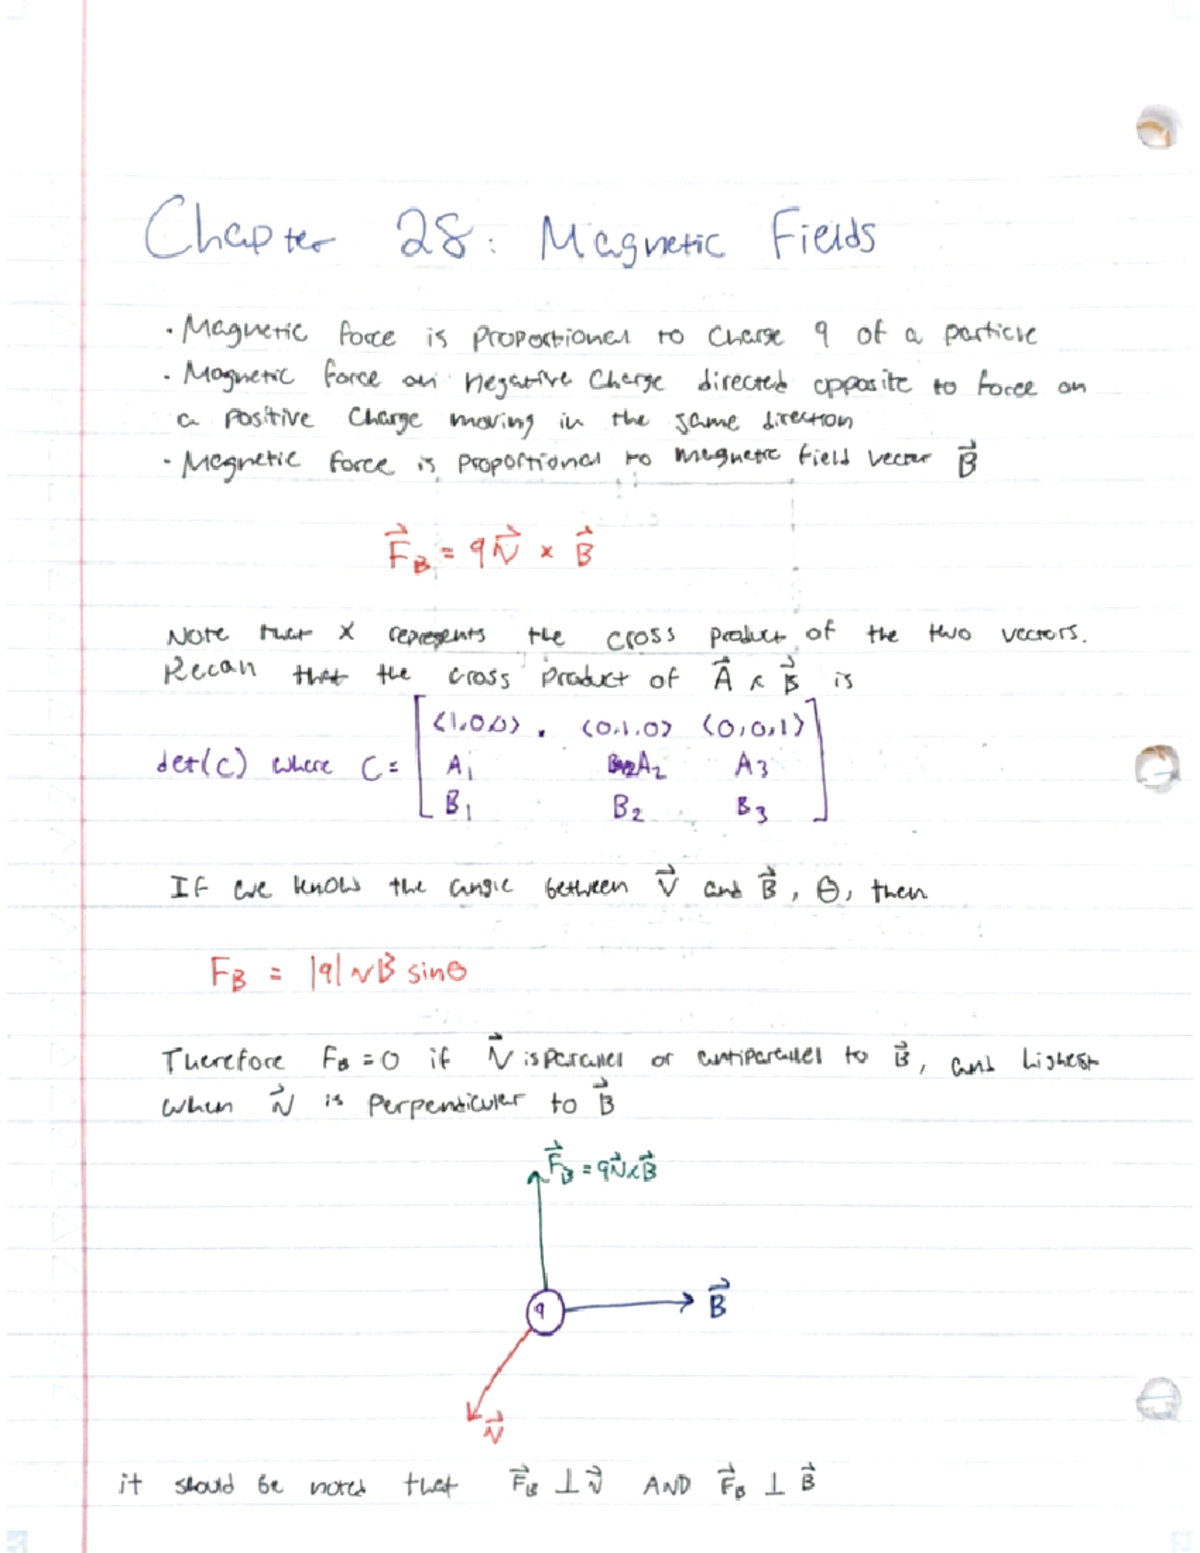 Chapter 28: Magnetic Fields
· Magnetic force is proportional to charge q of a particle
· Magnetic force on negative charge directed opposite to force on
a positive charge moving in the same direction
· Magnetic force is proportional to magnetic field vector B⃗
F⃗_B = q v⃗ × B⃗
Note that X represents the cross product of the two vectors.
Recall that the cross product of A⃗ × B⃗ is
<1,0,0> , <0,1,0> <0,0,1>
det(C) where C = A₁ A₂ A₃
B₁ B₂ B₃
If we know the angle between v⃗ and B⃗, θ, then
F_B = |q| v B sinθ
Therefore F_B = 0 if v⃗ is parallel or antiparallel to B⃗, and highest
when v⃗ is perpendicular to B⃗
F⃗_B = q v⃗ × B⃗
q B⃗
v⃗
it should be noted that F⃗_B ⊥ v⃗ AND F⃗_B ⊥ B⃗